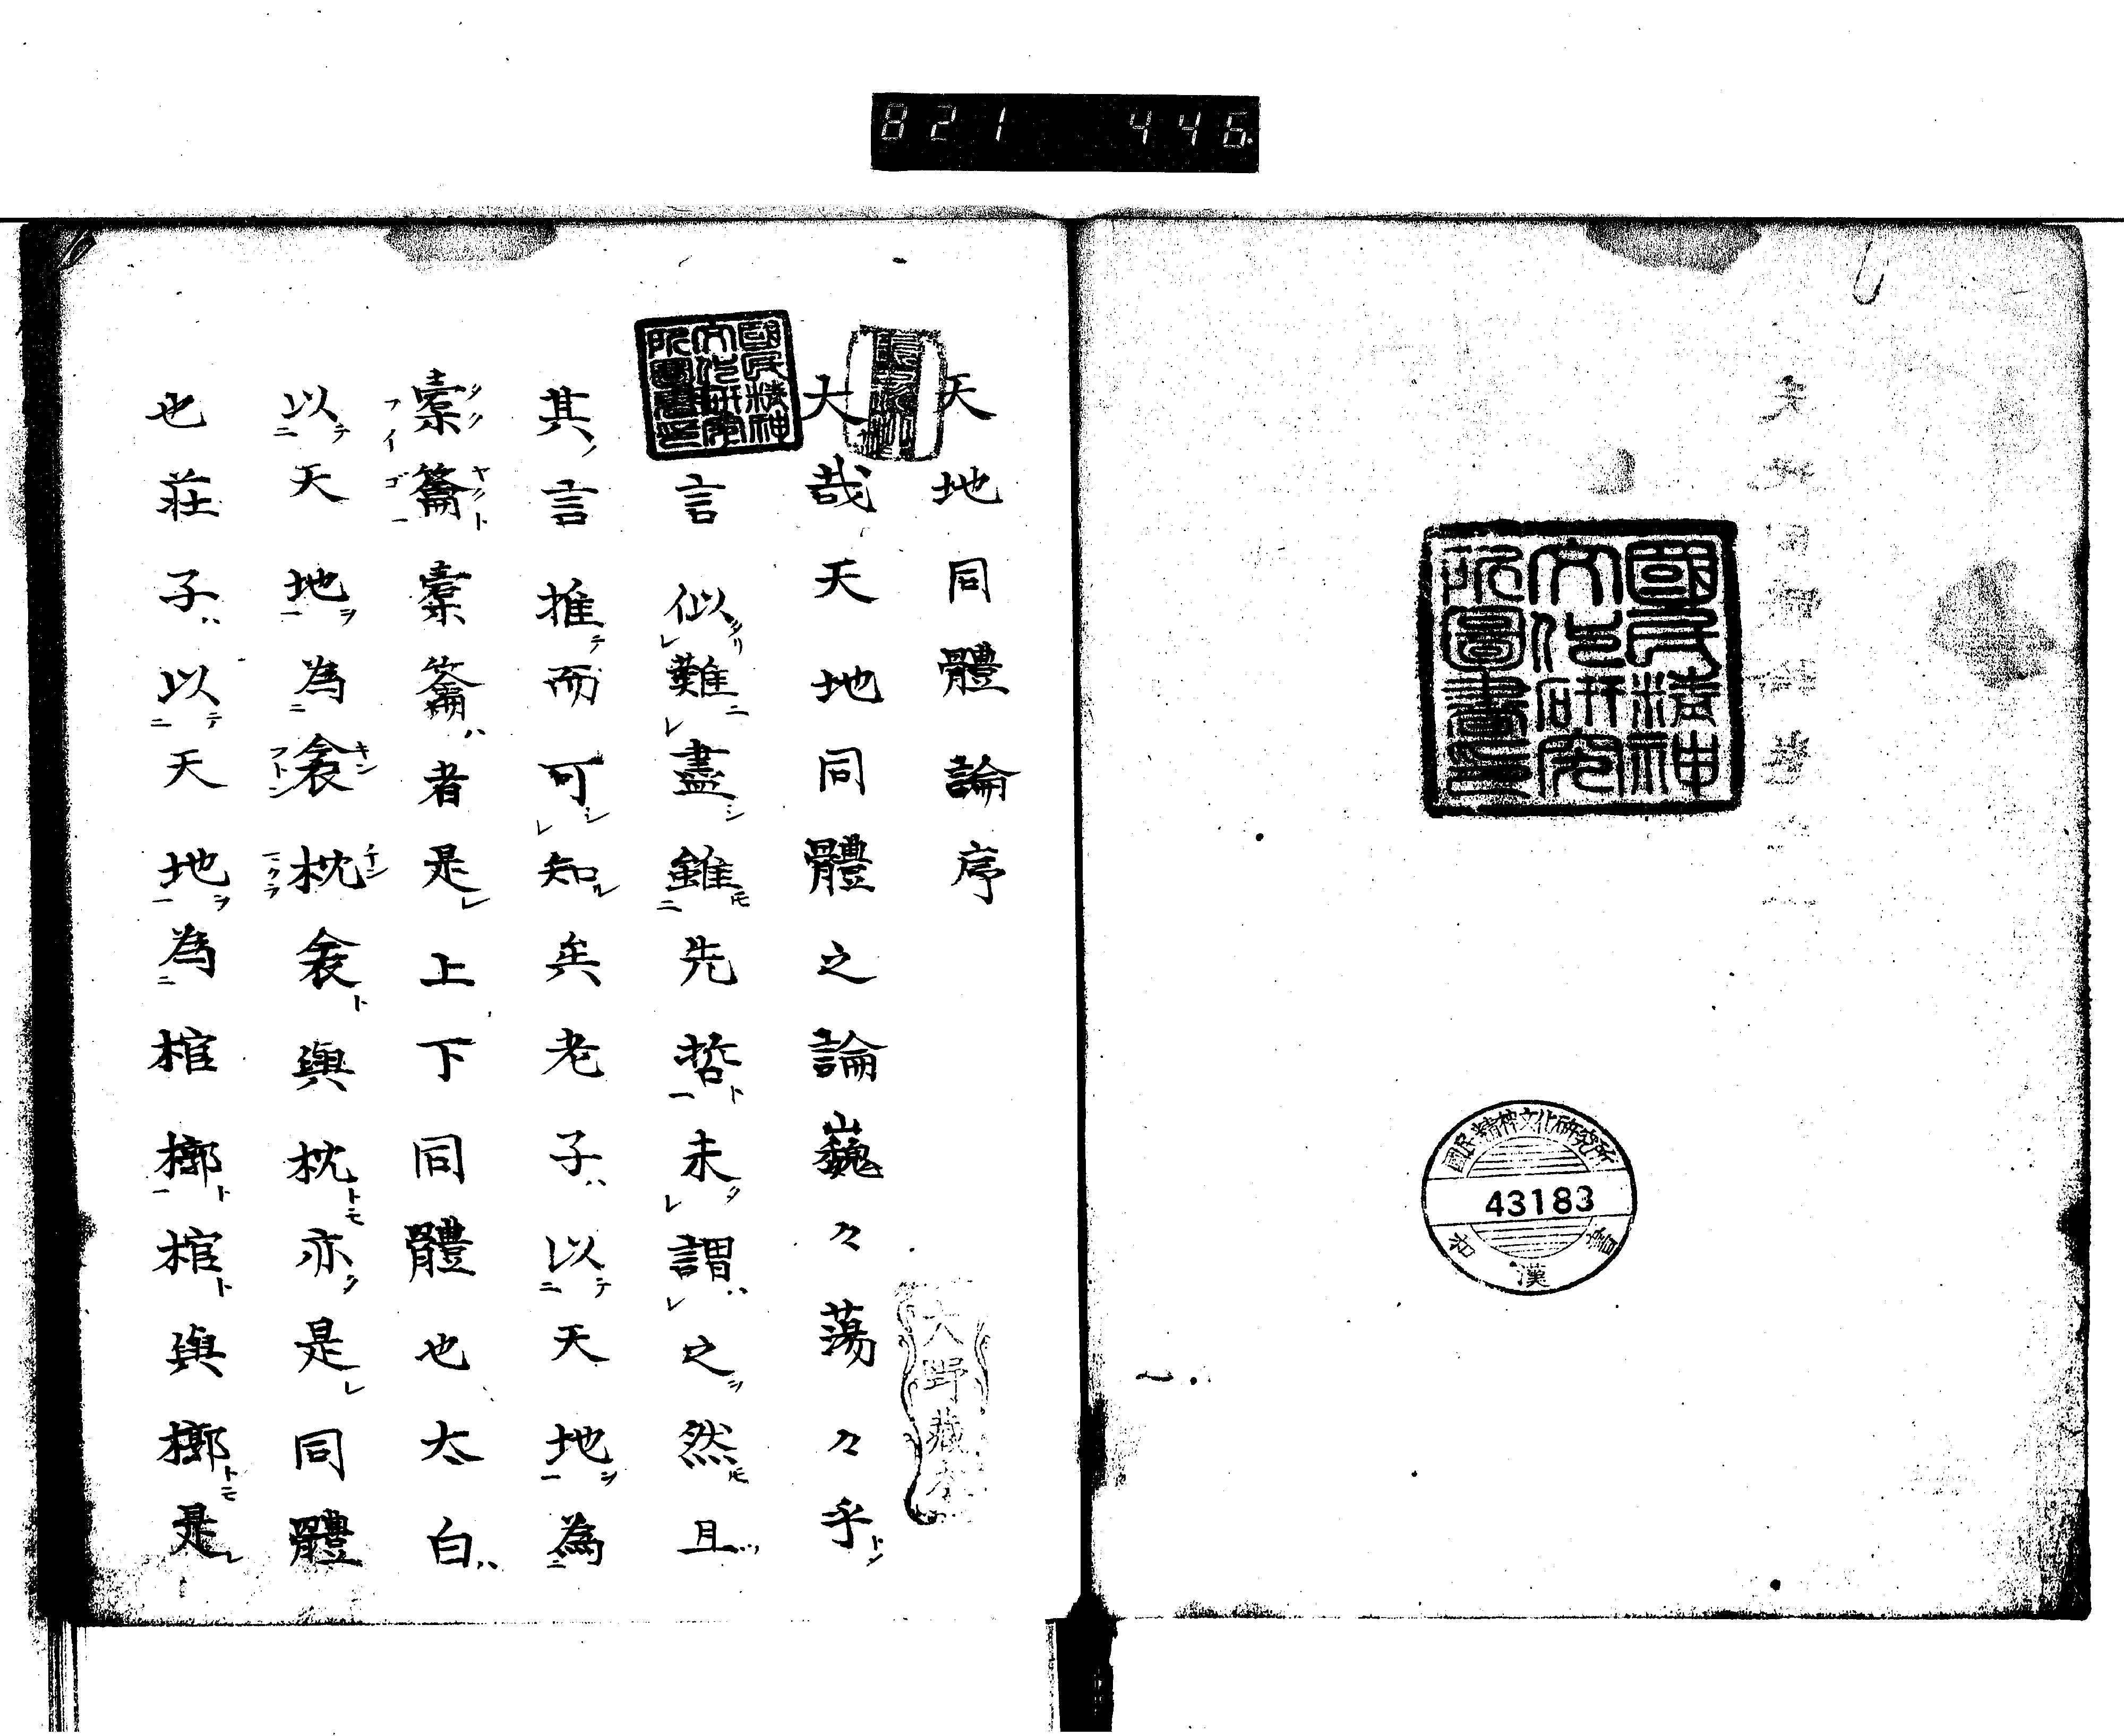 821 446
國民精神
文化研究
所圖書印
國民精神文化研究所
43183
和漢書
天地同體論序
大哉天地同體之論巍々蕩々乎
言似難盡雖先哲未謂之然且
其言推而可知矣老子以天地為
橐籥橐籥者是上下同體也太白
以天地為衾枕衾與枕亦是同體
也莊子以天地為棺槨棺與槨是
國民精神
文化研究
所圖書印
大野藏本